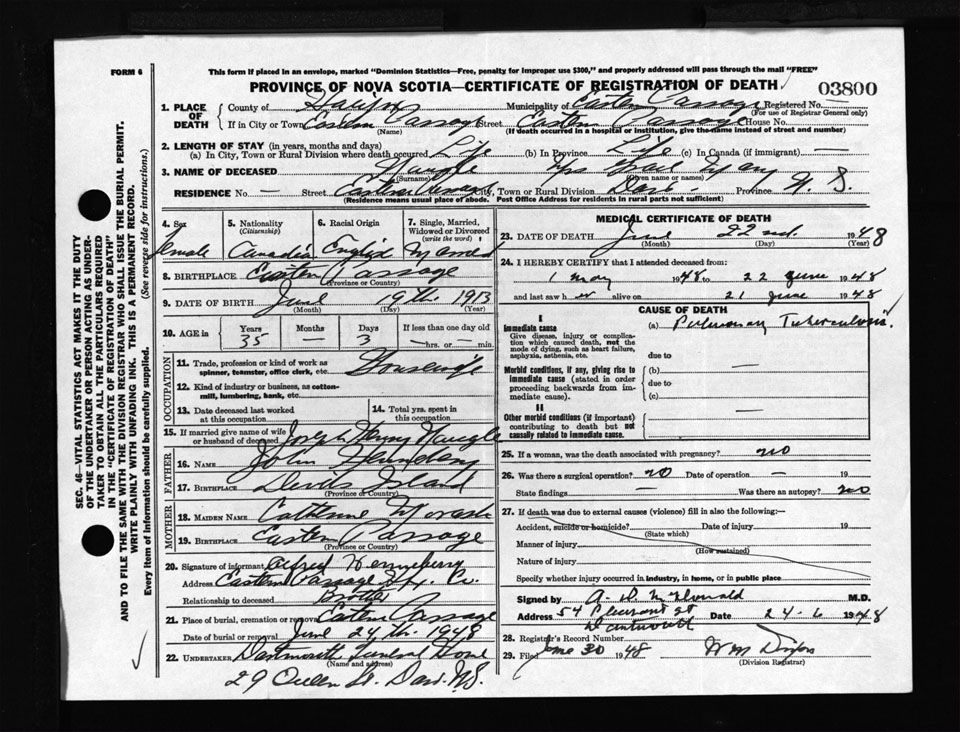 FORM 6
This form if placed in an envelope, marked "Dominion Statistics—Free, penalty for improper use $300," and properly addressed will pass through the mail "FREE"
PROVINCE OF NOVA SCOTIA—CERTIFICATE OF REGISTRATION OF DEATH
03800
1. PLACE OF DEATH County of Halifax Municipality of Eastern Passage Registered No. —
(For use of Registrar General only)
If in City or Town Eastern Passage Street Eastern Passage House No.
(Name) (If death occurred in a hospital or institution, give the name instead of street and number)
2. LENGTH OF STAY (in years, months and days)
(a) In City, Town or Rural Division where death occurred Life (b) In Province Life (c) In Canada (if immigrant) —
3. NAME OF DECEASED Naugle Mrs
(Surname) (Given name or names)
RESIDENCE No. — Street Eastern Passage City, Town or Rural Division Dart. Province N. S.
(Residence means usual place of abode. Post Office Address for residents in rural parts not sufficient)
4. Sex Female
5. Nationality (Citizenship) Canadian
6. Racial Origin English
7. Single, Married, Widowed or Divorced (write the word) Married
8. BIRTHPLACE Eastern Passage
(Province or Country)
9. DATE OF BIRTH June 19th. 1913
(Month) (Day) (Year)
10. AGE in Years 35 Months — Days 3 If less than one day old —hrs. or — min.
OCCUPATION
11. Trade, profession or kind of work as spinner, teamster, office clerk, etc. Housewife
12. Kind of industry or business, as cotton-mill, lumbering, bank, etc.
13. Date deceased last worked at this occupation
14. Total yrs. spent in this occupation
15. If married give name of wife or husband of deceased Joseph Henry Naugle
FATHER
16. NAME John
17. BIRTHPLACE Devils Island
(Province or Country)
MOTHER
18. MAIDEN NAME Catherine
19. BIRTHPLACE Eastern Passage
(Province or Country)
20. Signature of informant Alfred Henneberry
Address Eastern Passage Hfx. Co.
Relationship to deceased Brother
21. Place of burial, cremation or removal Eastern Passage
Date of burial or removal June 24th. 1948
22. UNDERTAKER Dartmouth Funeral Home
(Name and address)
29 Queen St. Dart. N.S.
MEDICAL CERTIFICATE OF DEATH
23. DATE OF DEATH June 22nd. 1948
(Month) (Day) (Year)
24. I HEREBY CERTIFY that I attended deceased from:
1 May 1948 to 22 June 1948
and last saw h er alive on 21 June 1948
CAUSE OF DEATH
I
Immediate cause
Give disease, injury or complication which caused death, not the mode of dying, such as heart failure, asphyxia, asthenia, etc.
(a) Pulmonary Tuberculosis
due to
Morbid conditions, if any, giving rise to immediate cause (stated in order proceeding backwards from immediate cause).
(b) —
due to
(c)
II
Other morbid conditions (if important) contributing to death but not causally related to immediate cause. —
25. If a woman, was the death associated with pregnancy? no
26. Was there a surgical operation? no Date of operation — 19
State findings — Was there an autopsy? no
27. If death was due to external causes (violence) fill in also the following:—
Accident, suicide or homicide? Date of injury 19
(State which)
Manner of injury
(How sustained)
Nature of injury
Specify whether injury occurred in industry, in home, or in public place
Signed by A. D. McDonald M.D.
Address 54 Pleasant St Date 24-6 1948
Dartmouth
28. Registrar's Record Number
29. Filed June 30 1948
(Division Registrar)
SEC. 46—VITAL STATISTICS ACT MAKES IT THE DUTY
OF THE UNDERTAKER OR PERSON ACTING AS UNDER-
TAKER TO OBTAIN ALL THE PARTICULARS REQUIRED
IN THE "CERTIFICATE OF REGISTRATION OF DEATH"
AND TO FILE THE SAME WITH THE DIVISION REGISTRAR WHO SHALL ISSUE THE BURIAL PERMIT.
WRITE PLAINLY WITH UNFADING INK. THIS IS A PERMANENT RECORD.
Every item of information should be carefully supplied. (See reverse side for instructions.)